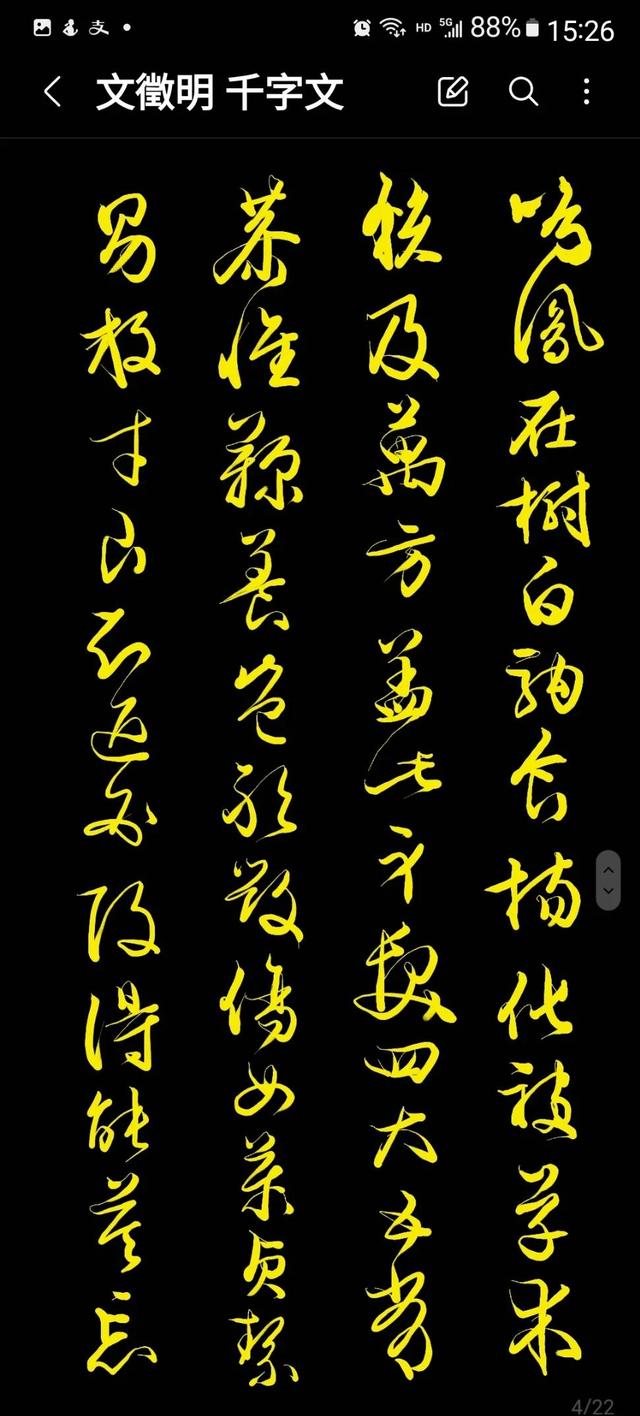 支
HD 5G 88% 15:26
文徵明 千字文
鳴鳳在樹白駒食場化被草木
賴及萬方蓋此身髮四大五常
恭惟鞠養豈敢毀傷女慕貞絜
男效才良知過必改得能莫忘
4/22